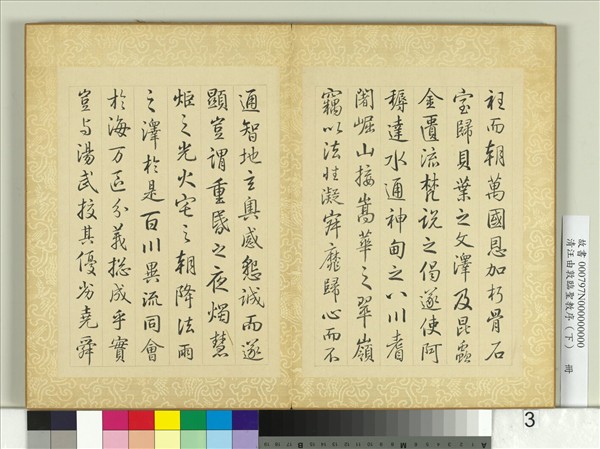 衽而朝萬國恩加朽骨石
室歸貝葉之文澤及昆蟲
金匱流梵說之偈遂使阿
耨達水通神甸之八川耆
闍崛山接嵩華之翠嶺
竊以法性凝寂靡歸心而不
通智地玄奧感懇誠而遂
顯豈謂重昏之夜燭慧
炬之光火宅之朝降法雨
之澤於是百川異流同會
於海万區分義總成乎實
豈與湯武校其優劣堯舜
故書 000797N000000000
清汪由敦臨聖教序（下） 冊
3